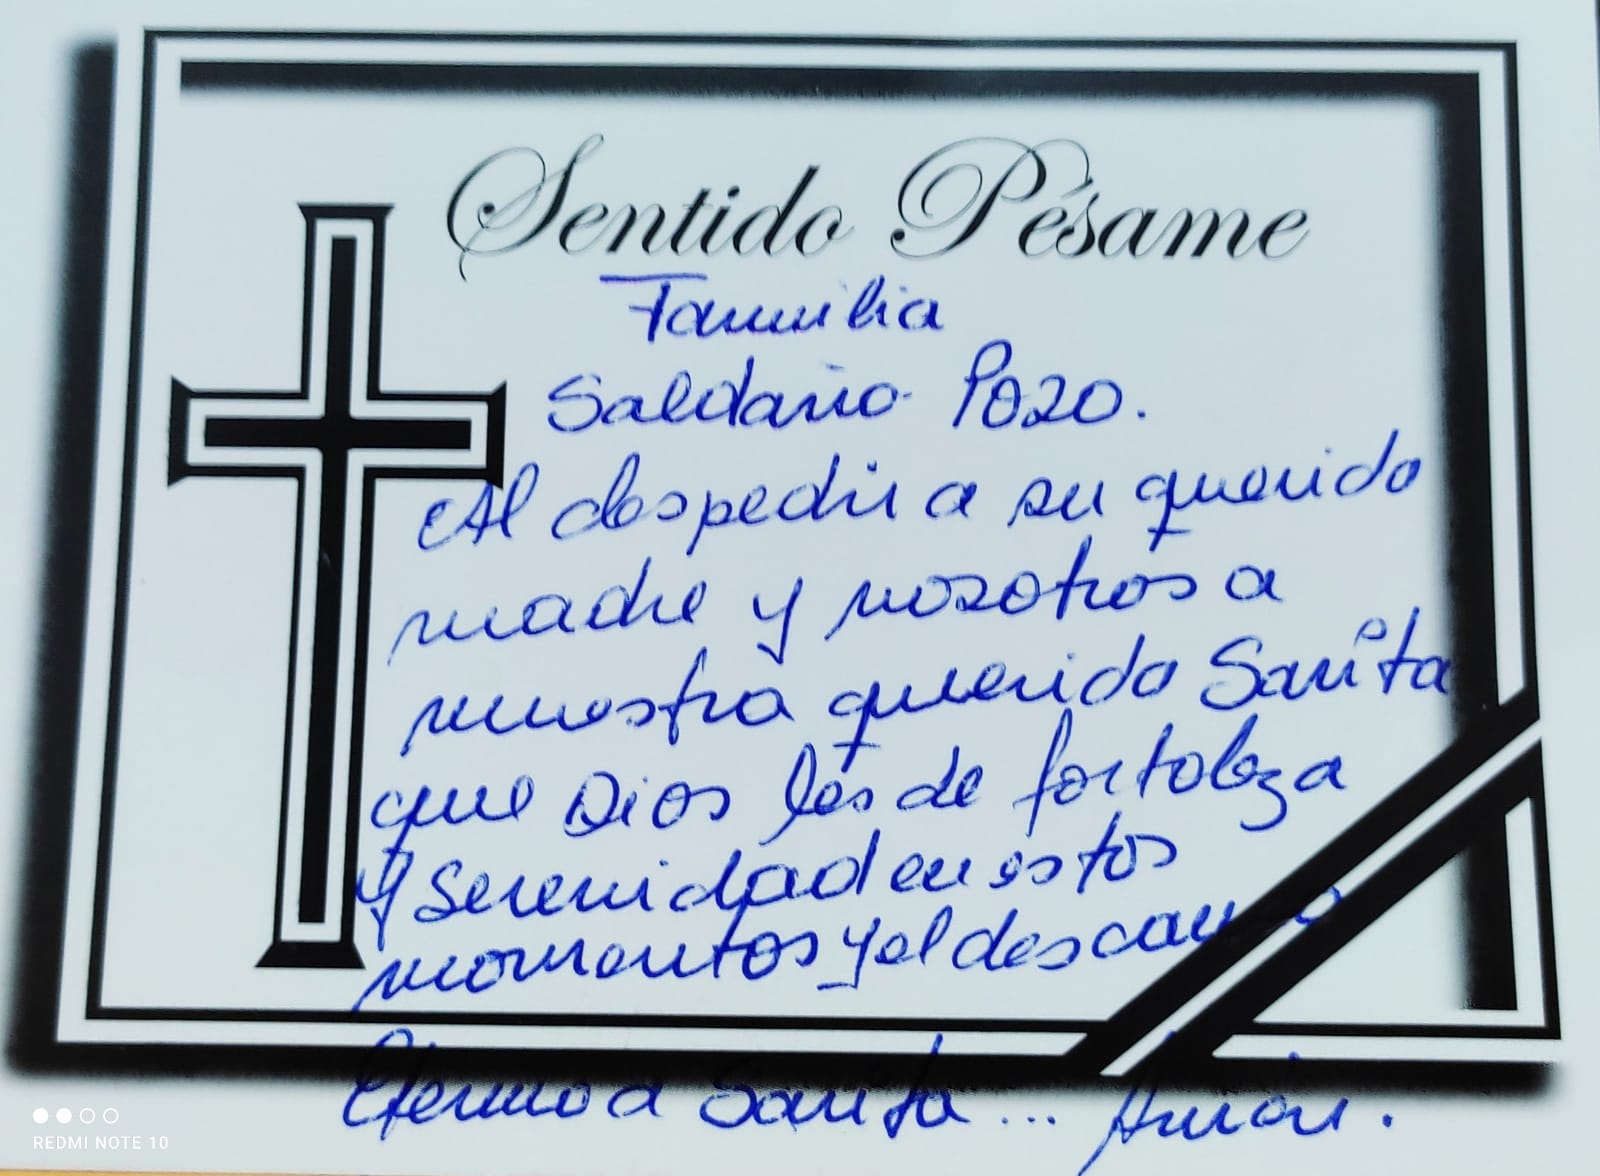 Sentido Pésame
Familia
Saldaño Pozo.
Al despedir a su querida
madre y nosotros a
nuestra querida Sarita
que Dios les de fortaleza
y Serenidad en estos
momentos y el descanso
Eterno a Sarita... Amén.
REDMI NOTE 10